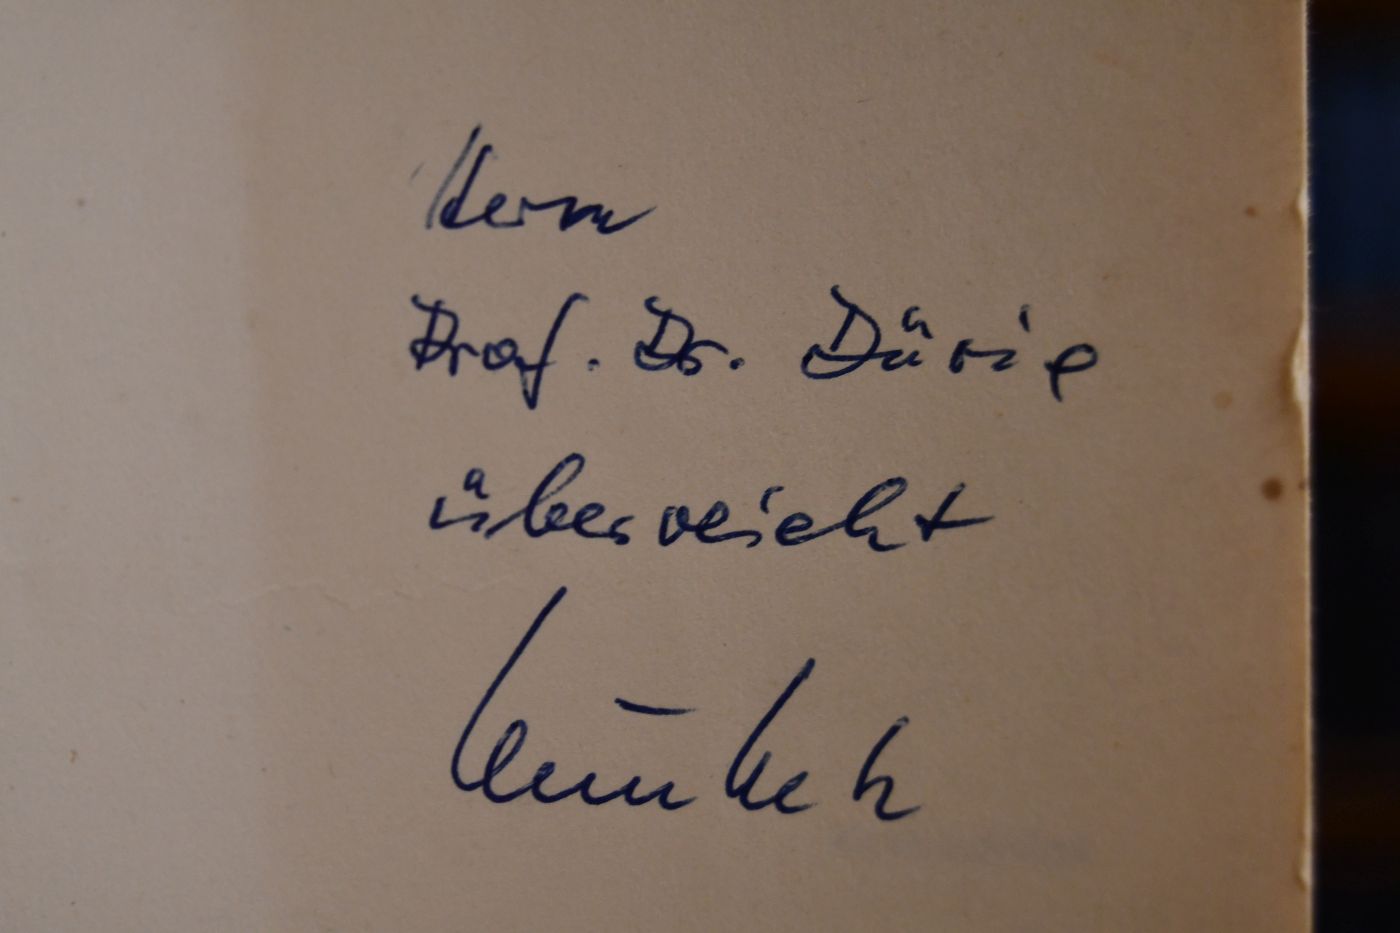 Herrn
Prof. Dr. Dürig
überreicht